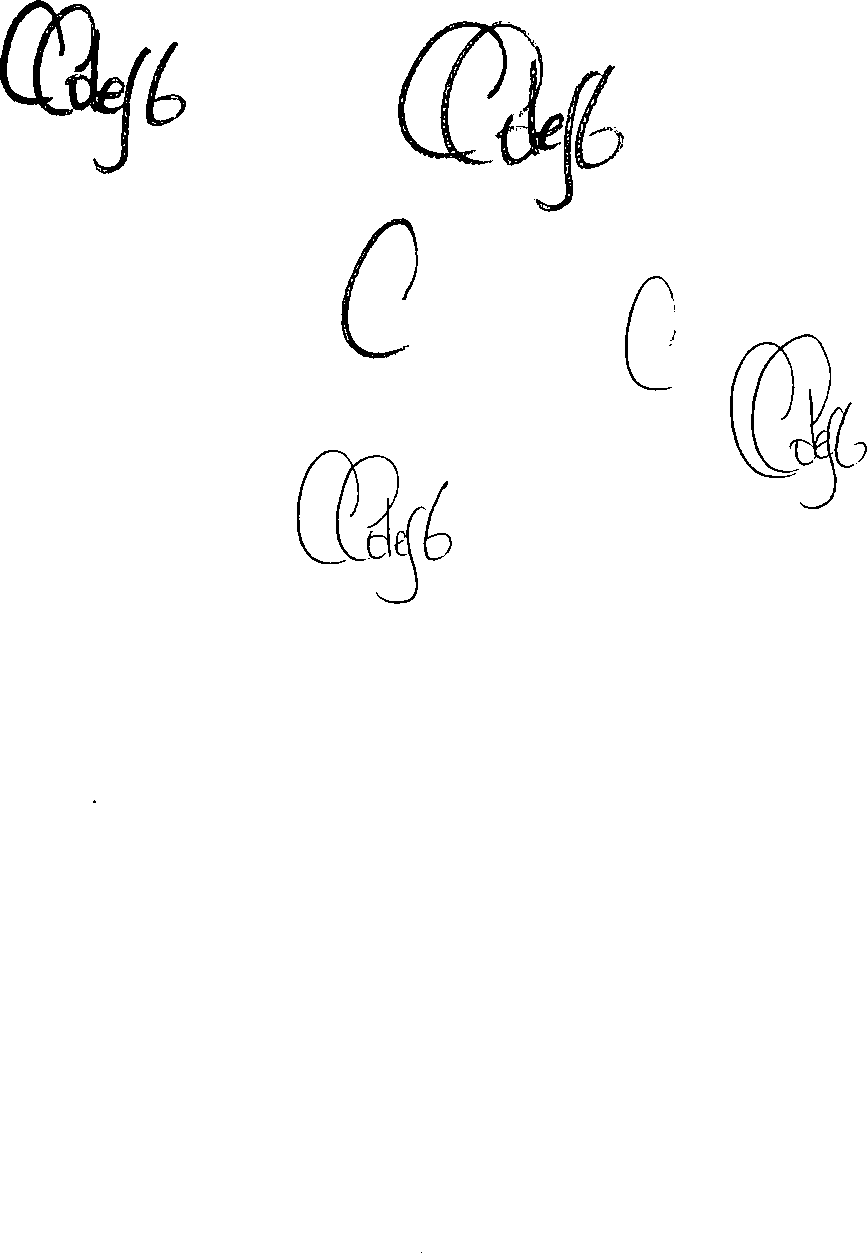 CCdef6 CCdef6
C
C
CCdef6
CCdef6